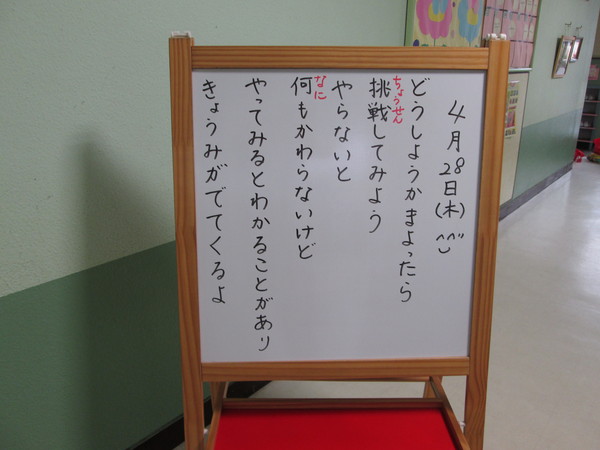 4月28日(木) ^^
どうしようかまよったら
挑戦してみよう
ちょうせん
やらないと
何もかわらないけど
なに
やってみるとわかることがあり
きょうみがでてくるよ